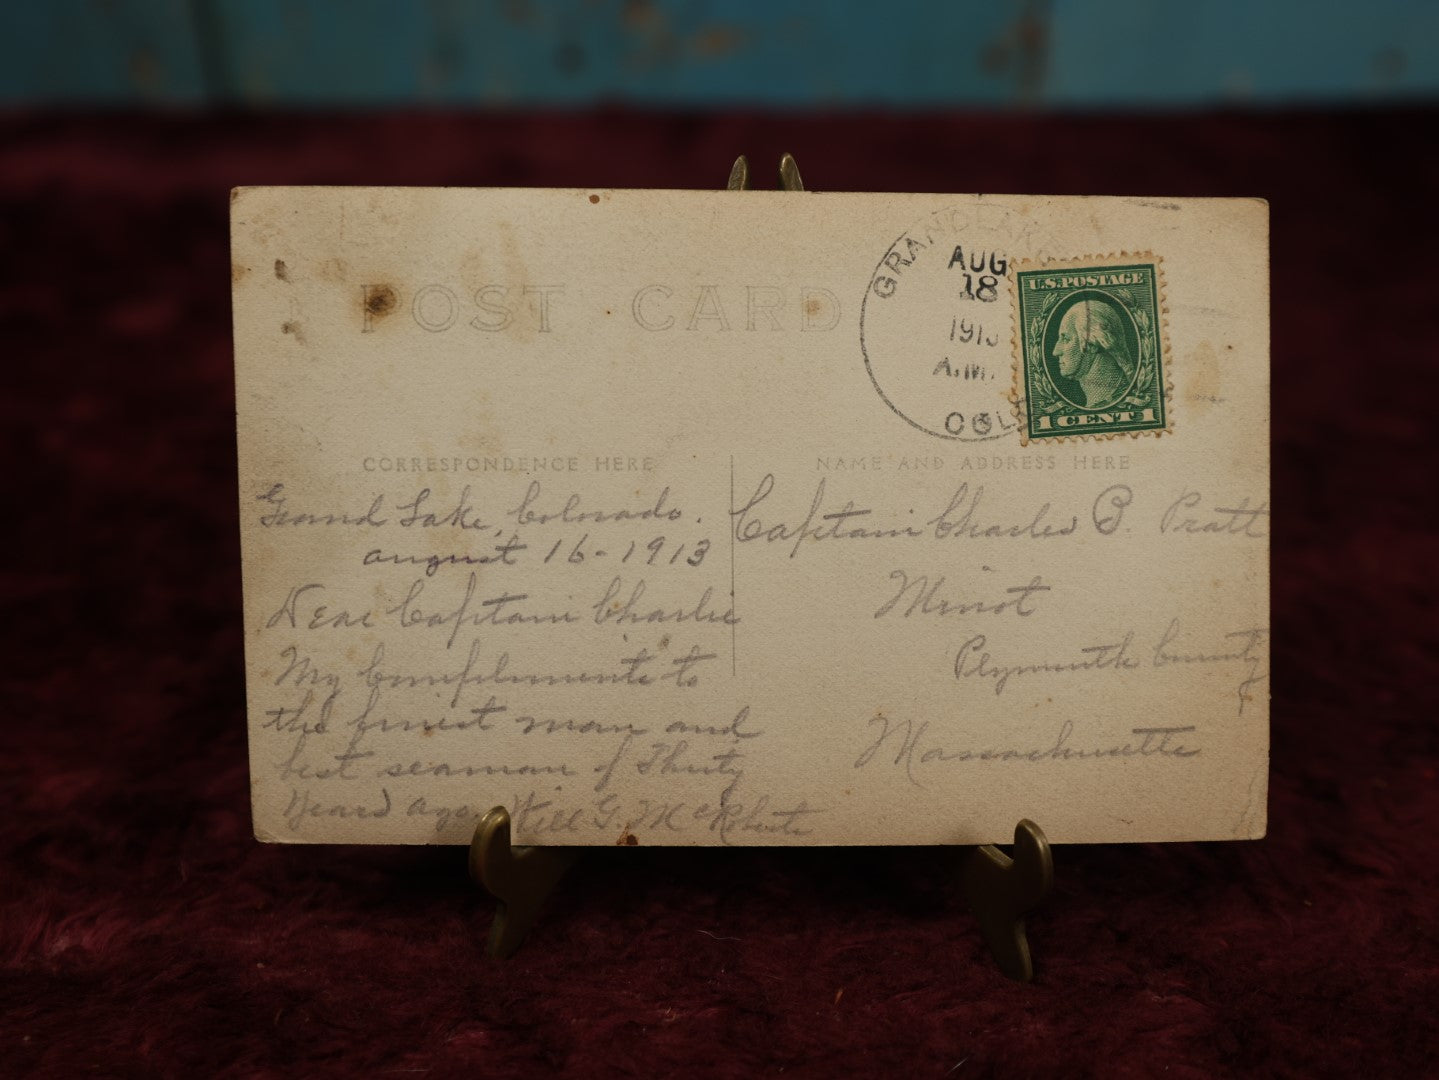 POST CARD
GRAND LAKE
AUG
18
1913
A.M.
COLO.
U.S. POSTAGE
1 CENT 1
CORRESPONDENCE HERE
NAME AND ADDRESS HERE
Grand Lake, Colorado.
august 16-1913
Dear Captain Charlie
My Compliments to
the finest man and
best seaman of Thirty
Years ago. Will G. McRoberts
Captain Charles B. Pratt
Minot
Plymouth County
Massachusetts